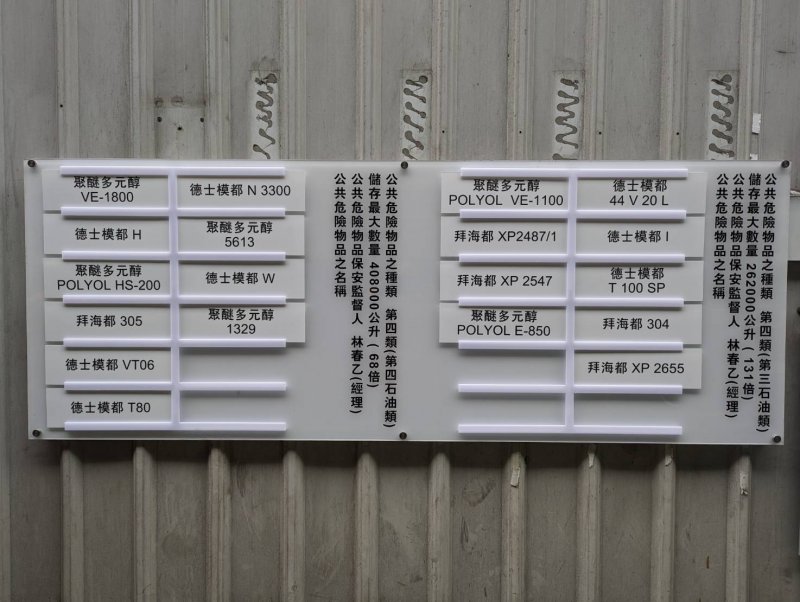 公共危險物品之種類 第四類(第三石油類)
儲存最大數量 262000公升 (131倍)
公共危險物品保安監督人 林春乙(經理)
公共危險物品之名稱
聚醚多元醇
POLYOL VE-1100
德士模都
44 V 20 L
拜海都 XP2487/1
德士模都 I
拜海都 XP 2547
德士模都
T 100 SP
聚醚多元醇
POLYOL E-850
拜海都 304
拜海都 XP 2655
公共危險物品之種類 第四類(第四石油類)
儲存最大數量 408000公升 (68倍)
公共危險物品保安監督人 林春乙(經理)
公共危險物品之名稱
聚醚多元醇
VE-1800
德士模都 N 3300
德士模都 H
聚醚多元醇
5613
聚醚多元醇
POLYOL HS-200
德士模都 W
拜海都 305
聚醚多元醇
1329
德士模都 VT06
德士模都 T80